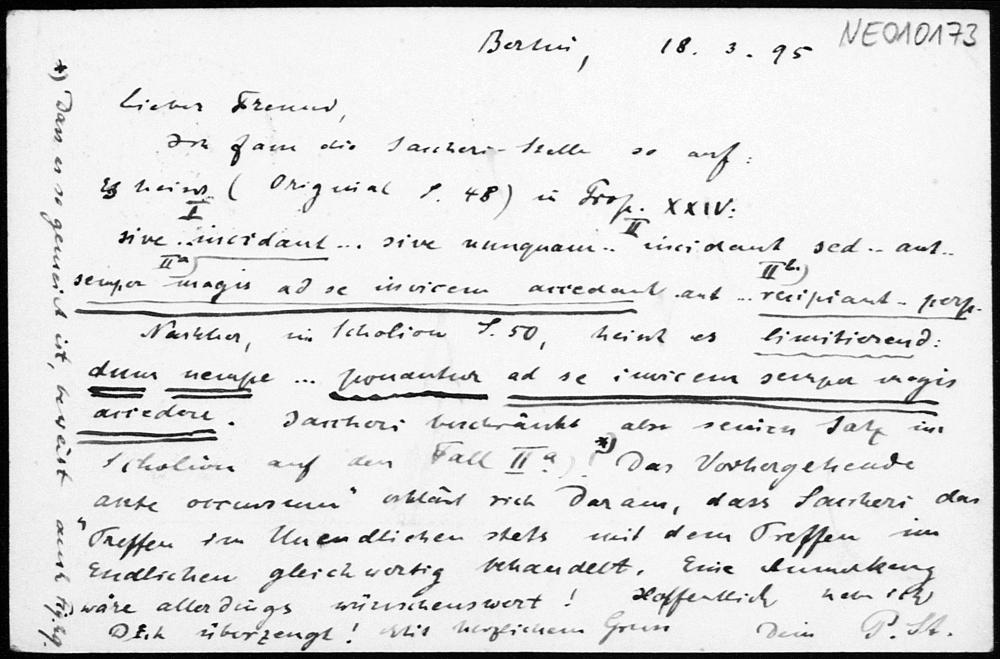 NEO10173
Berlin, 18. 3. 95
Lieber Freund,
Ich fasse die Saccheri-Stelle so auf:
Es heisst (Original S. 48) in Prop. XXIV:
I II
sive .. incidant ... sive nunquam .. incidant sed .. aut ..
IIa) IIb)
semper magis ad se invicem accedant aut ... recipiant .. perp.
Nachher, im Scholion S. 50, heisst es limitierend:
dum nempe ... ponantur ad se invicem semper magis
accedere. Saccheri beschränkt also seinen Satz im
Scholion auf den Fall IIa)! *) Das Vorhergehende
"ante occursum" erklärt sich daraus, dass Saccheri das
Treffen im Unendlichen stets mit dem Treffen im
Endlichen gleichwertig behandelt. Eine Anmerkung
wäre allerdings wünschenswert! Hoffentlich habe ich
Dich überzeugt! Mit herzlichem Gruss Dein P. St.
*) Dass es so gemeint ist, beweist auch Fig. 29.